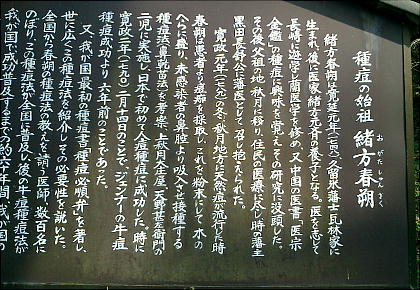 種痘の始祖 緒方春朔
おがたしゅんさく
緒方春朔は寛延元年(一七四八)久留米藩士瓦林家に
生まれ、後に医家緒方元斉の養子となる。医を志して
長崎に遊学し蘭医学を修め、又中国の医書「医宗
金鑑」の種痘に興味を覚え、その研究に没頭した。
その後父祖の地秋月に移り、住民の医療に尽し時の藩主
黒田長舒公に藩医として召し抱えられた。
寛政元年(一七八九)の冬、秋月地方に天然痘が流行した時
春朔は患者より痘痂を採取し、これを粉末にして木の
へらに盛り、未感染者の鼻腔より吸入させ接種する
種痘(鼻乾苗法)を考案、上秋月大庄屋天野甚左衛門の
二児に実施し日本で初めて人痘種痘に成功した。時に
寛政二年(一七九〇)二月十四日のことで、ジェンナーの牛痘
種痘成功より六年前のことであった。
又、我が国最初の種痘書「種痘必順弁」を著し、
世に広くこの種痘法を紹介してその必要性を説いた。
全国から春朔の種痘法の教えを請う医師は数百名に
のぼり、この種痘法が全国に普及し、後の牛痘種痘法が
我が国で成功普及するまでの約六十年間、我が国の